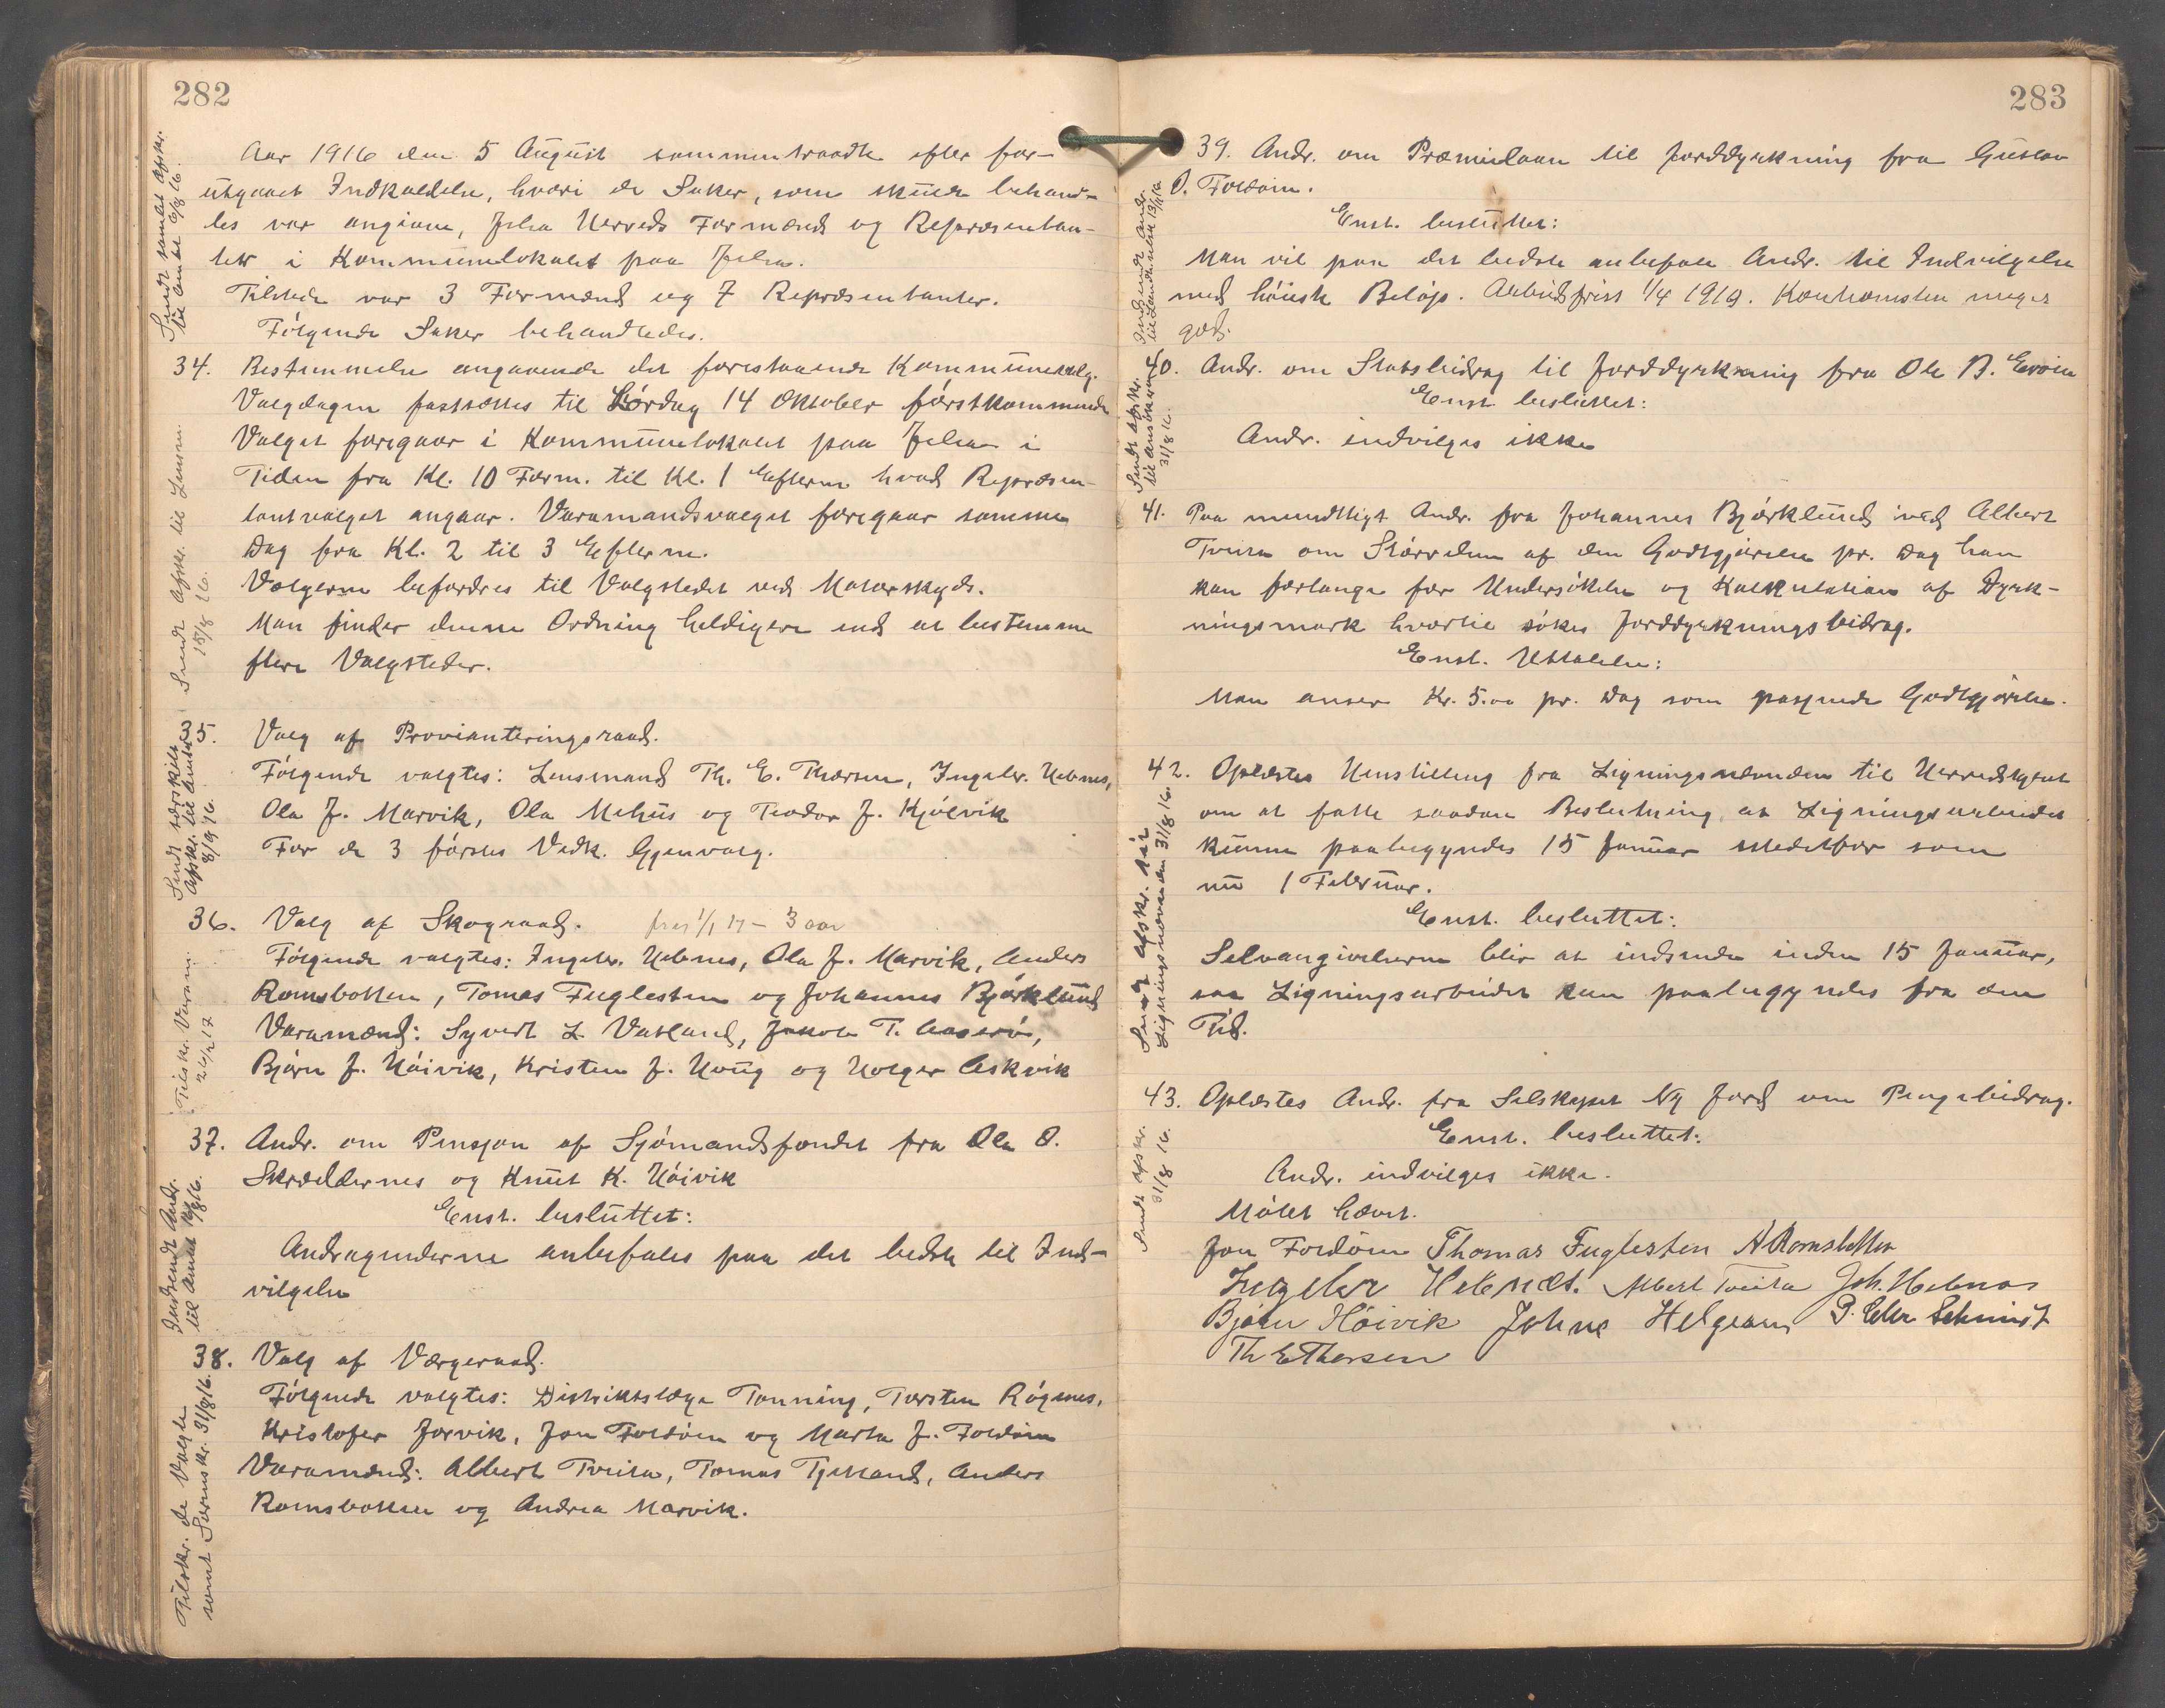 282
Aar 1916 den 5 August sammentraadte efter for-
utgaaet Indkaldelse, hvori de Saker, som skulde behand-
les var angivne, Jelsa Herreds Formænd og Repræsentan-
ter i Kommunelokalet paa Jelsa.
Tilstede var 3 Formænd og 7 Repræsentanter.
Følgende Saker behandledes.
Sendt samlet Afskr.
til Amtet 6/8 16.
34. Bestemmelse angaaende det forestaaende Kommunevalg.
Valgdagen fastsættes til Lørdag 14 Oktober førstkommende
Valget foregaar i Kommunelokalet paa Jelsa i
Tiden fra Kl. 10 Form. til Kl. 1 Efterm hvad Repræsen-
tantvalget angaar. Varamandsvalget foregaar samme
Dag fra Kl. 2 til 3 Efterm.
Vælgerne befordres til Valgstedet ved Motorskyds.
Man finder denne Ordning heldigere end at bestemme
flere Valgsteder.
Sendt Afskr. til Lensm.
15/8 16.
35. Valg af Provianteringsraad.
Følgende valgtes: Lensmand Th. E. Thorsen, Ingebr. Hebnes,
Ola J. Marvik, Ola Mehus og Teodor J. Kjølvik
For de 3 førstes Vedk. Gjenvalg.
Sendt særskilt
Afskr. til Amtet
8/9 16.
36. Valg af Skograad. fra 1/1 17 - 3 aar
Følgende valgtes: Ingebr. Hebnes, Ola J. Marvik, Anders
Romsbotten, Tomas Fuglesten og Johannes Bjørklund
Varamænd: Syvert L. Vatland, Jakob T.
Bjørn J. Høivik, Kristen J. Houg og Holger Askvik
Tilskr. Varam.
37. Andr. om Pensjon af Sjømandsfondet fra Ola O.
Skrældernes og Knut K. Høivik
Enst. besluttet:
Andragenderne anbefales paa det bedste til Ind-
vilgelse
Indsendt Andr.
til Amtet
38. Valg af Værgeraad.
Følgende valgtes: Distriktslæge Tonning, Torsten Røgnes,
Kristofer Jorvik, Jon Foldøen og Marta J. Foldøen
Varamænd: Albert Tveita, Tomas Tjetland, Anders
Romsbotten og Andrea Marvik.
Tilskr. de Valgte
samt Sorenskr. 31/8 16.
283
39. Andr. om Præmielaan til Jorddyrkning fra Gustav
O. Foldøen.
Enst. besluttet:
Man vil paa det bedste anbefale Andr. til Indvilgelse
med høieste Beløp. Arbeidsfrist 1/4 1919. Konkomsten meget
god.
Indsendt Andr.
40. Andr. om Statsbidrag til Jorddyrkning fra Ole B. Eroien
Enst. besluttet:
Andr. indvilges ikke
Sendt Afskr.
til ansøkeren
31/8 16.
41. Paa mundtligt Andr. fra Johannes Bjørklund ved Albert
Tveita om Størrelsen af den Godtgjørelse pr. Dag han
kan forlange for Undersøkelse og Kalkulation af Dyrk-
ningsmark hvortil søkes Jorddyrkningsbidrag.
Enst. Uttalelse:
Man anser Kr. 5.00 pr. Dag som passende Godtgjørelse.
42. Oplæstes Henstilling fra Ligningsnævnden til Herredstyret
om at fatte saadan Beslutning, at Ligningsarbeidet
kunne paabegyndes 15 Januar istedetfor som
nu 1 Februar.
Enst. besluttet:
Selvangivelserne blir at indsende inden 15 Januar,
saa Ligningsarbeidet kan paabegyndes fra den
Tid.
Sendt Afskr. til
Ligningsnævnden 31/8 16.
43. Oplæstes Andr. fra Selskapet Ny Jord om Pengebidrag.
Enst. besluttet:
Andr. indvilges ikke.
Møtet hævet.
Sendt Afskr.
31/8 16.
Jon Foldöen Thomas Fuglesten A Romsbotten
Ingebr Hebnes. Albert Tveita Joh. Hebnes
Bjørn Høivik Johne Helgeam P. Eller Schmidt
Th E Thorsen